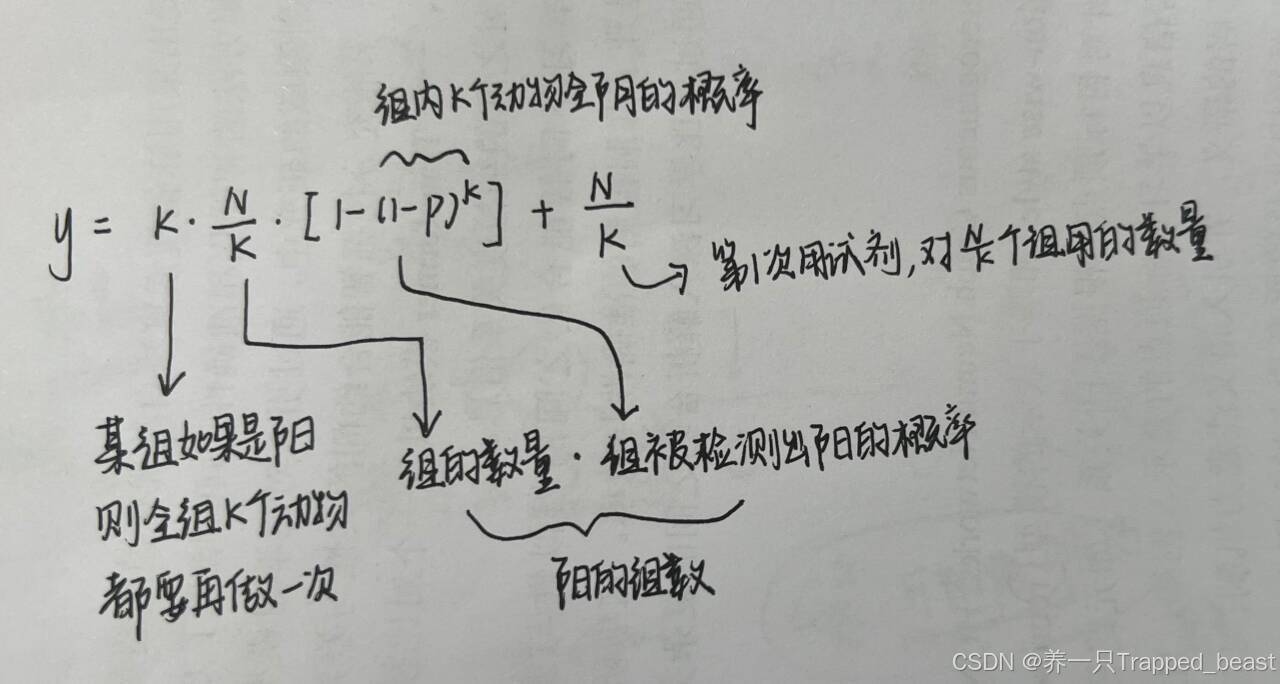 组内K个动物全阴的概率
y = K · N/K · [1-(1-P)^K] + N/K
第1次用试剂,对N/K个组用的数量
某组如果是阳
则全组K个动物
都要再做一次
组的数量 · 组被检测出阳的概率
阳的组数
CSDN @养一只Trapped_beast